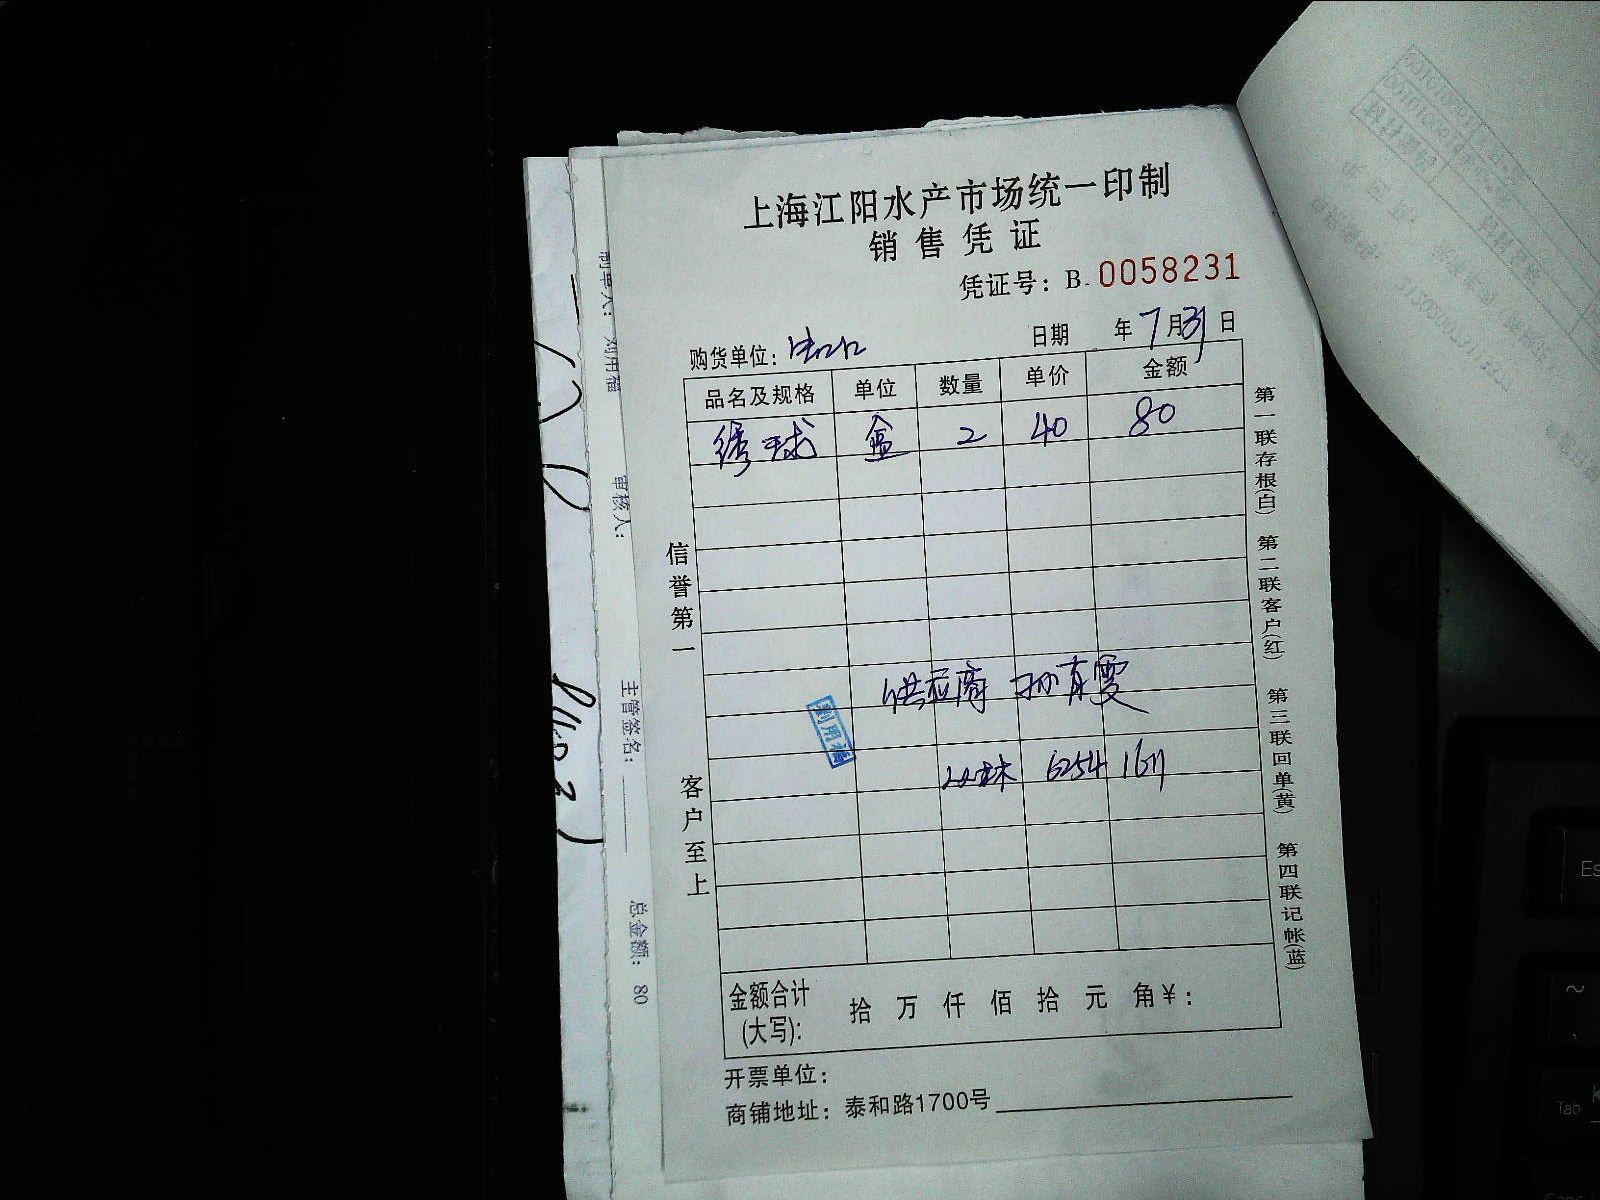 上海江阳水产市场统一印制
销售凭证
凭证号：B. 0058231
购货单位：
日期 年7月31日
品名及规格 单位 数量 单价 金额
绣球 盒 2 40 80
供应商 孙有雯
6254 1611
刘用福
信誉第一
客户至上
第一联存根(白) 第二联客户(红) 第三联回单(黄) 第四联记帐(蓝)
金额合计(大写)： 拾 万 仟 佰 拾 元 角¥：
开票单位：
商铺地址：泰和路1700号
制单人：刘用福 审核人： 主管签名： 总金额：80
Tab